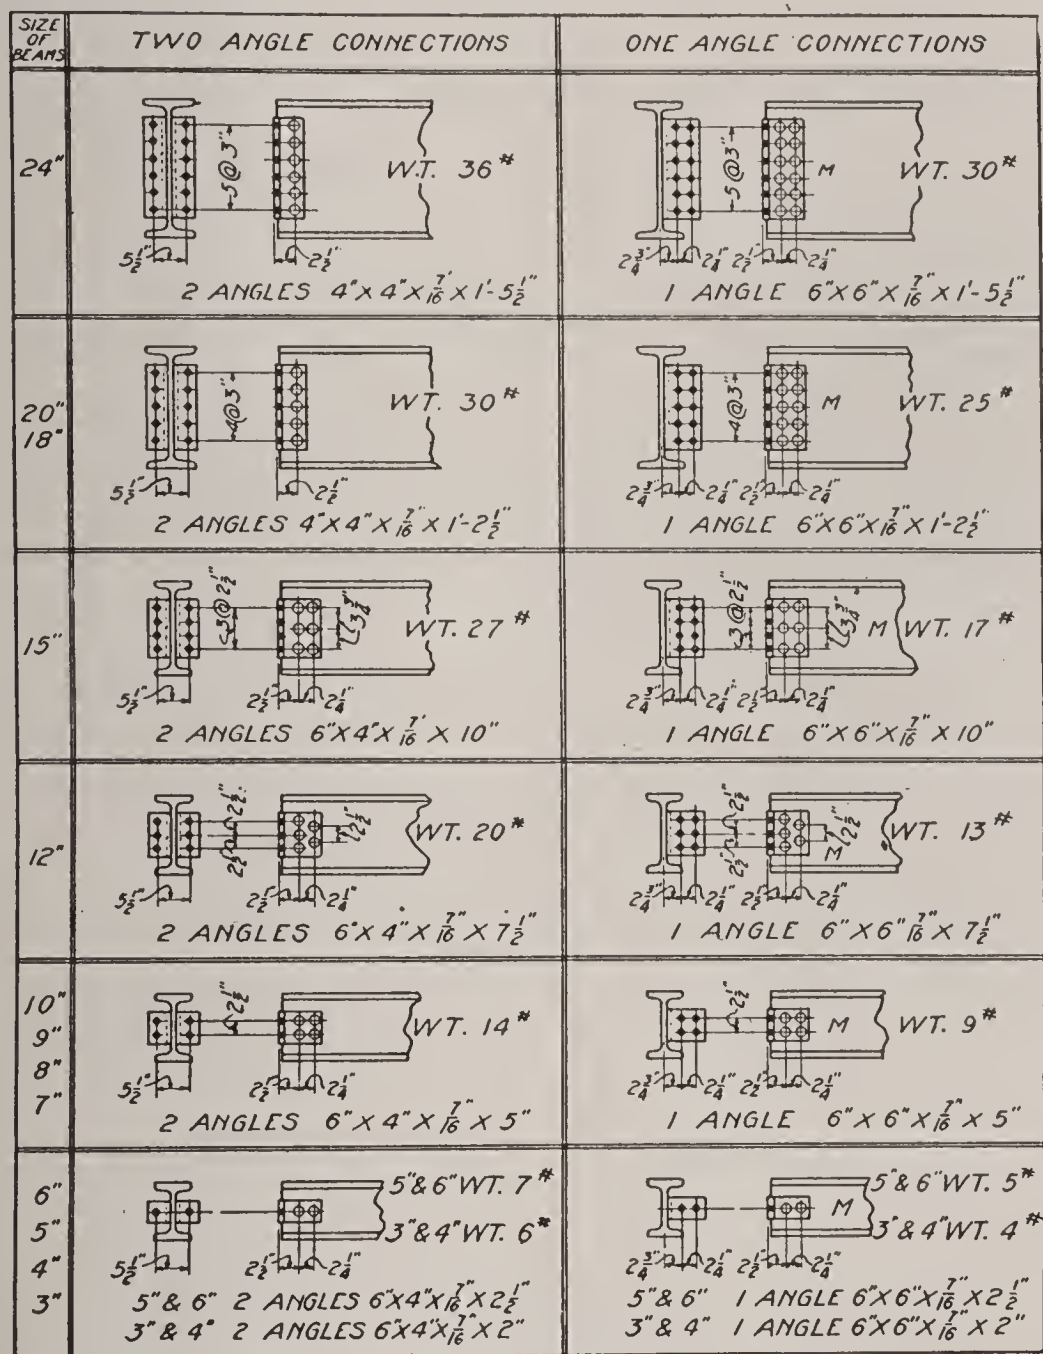 SIZE OF BEAMS
TWO ANGLE CONNECTIONS
ONE ANGLE CONNECTIONS
24"
5@3"
WT. 36#
5½"
2½"
2 ANGLES 4"X4"X7/16"X1'-5½"
5@3"
M
WT. 30#
2¾"
2¼"
2½"
2¼"
1 ANGLE 6"X6"X7/16"X1'-5½"
20"
18"
4@3"
WT. 30#
5½"
2½"
2 ANGLES 4"X4"X7/16"X1'-2½"
4@3"
M
WT. 25#
2¾"
2¼"
2½"
2¼"
1 ANGLE 6"X6"X7/16"X1'-2½"
15"
3@2½"
3¾"
WT. 27#
5½"
2½"
2¼"
2 ANGLES 6"X4"X7/16"X10"
3@2½"
3¾"
M
WT. 17#
2¾"
2¼"
2½"
2¼"
1 ANGLE 6"X6"X7/16"X10"
12"
2½"
2½"
2½"
WT. 20#
5½"
2½"
2¼"
2 ANGLES 6"X4"X7/16"X7½"
2½"
2½"
M
2½"
WT. 13#
2¾"
2¼"
2½"
2¼"
1 ANGLE 6"X6"7/16"X7½"
10"
9"
8"
7"
2½"
WT. 14#
5½"
2½"
2¼"
2 ANGLES 6"X4"X7/16"X5"
2½"
M
WT. 9#
2¾"
2¼"
2½"
2¼"
1 ANGLE 6"X6"X7/16"X5"
6"
5"
4"
3"
5"&6" WT. 7#
3"&4" WT. 6#
5½"
2½"
2¼"
5"&6" 2 ANGLES 6"X4"X7/16"X2½"
3"&4" 2 ANGLES 6"X4"X7/16"X2"
M
5"&6" WT. 5#
3"&4" WT. 4#
2¾"
2¼"
2½"
2¼"
5"&6" 1 ANGLE 6"X6"X7/16"X2½"
3"&4" 1 ANGLE 6"X6"X7/16"X2"